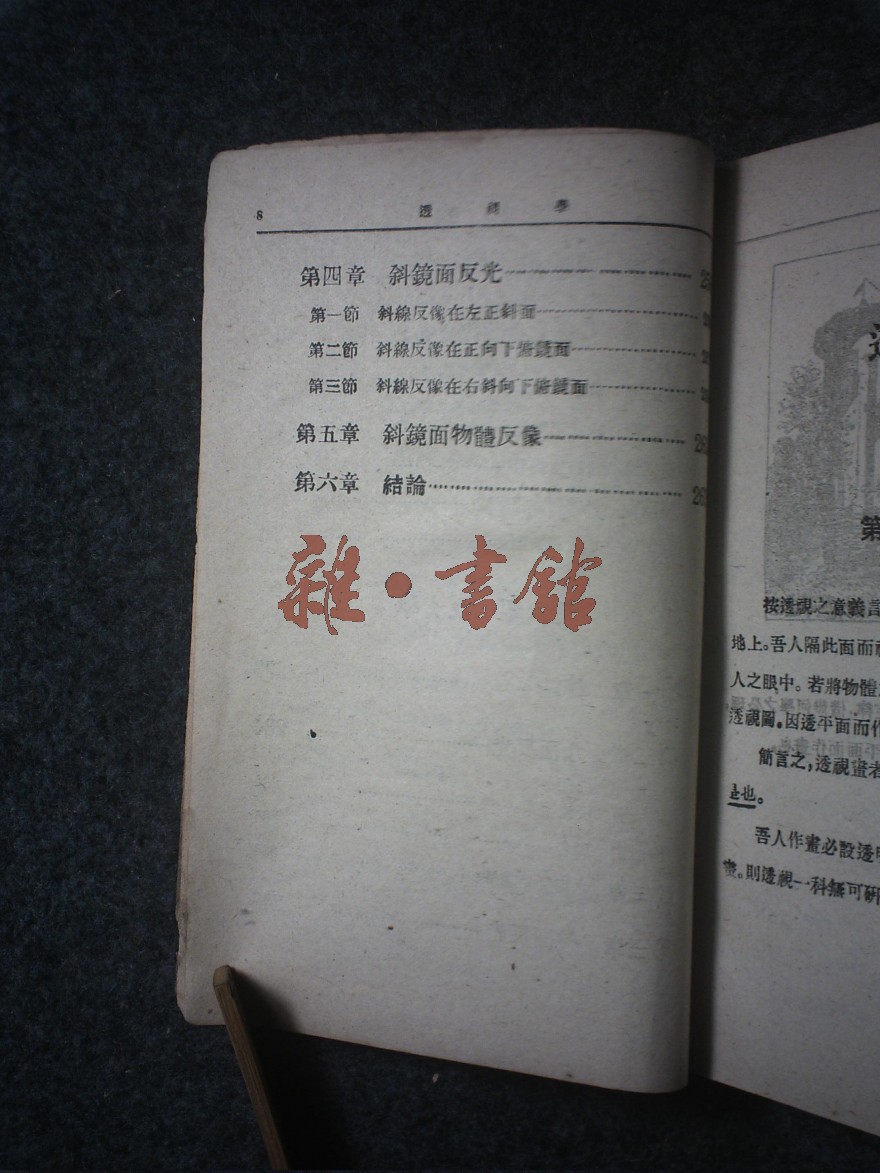 8 透視學
第四章 斜鏡面反光
第一節 斜線反像在左正斜面
第二節 斜線反像在正向下俯鏡面
第三節 斜線反像在右斜向下俯鏡面
第五章 斜鏡面物體反像
第六章 結論
雜·書館
第
按透視之意義言
地上。吾人隔此面而
人之眼中。若將物體
透視圖。因透平面而作
簡言之，透視畫者
是也。
吾人作畫必設透明
畫。則透視一科無可研